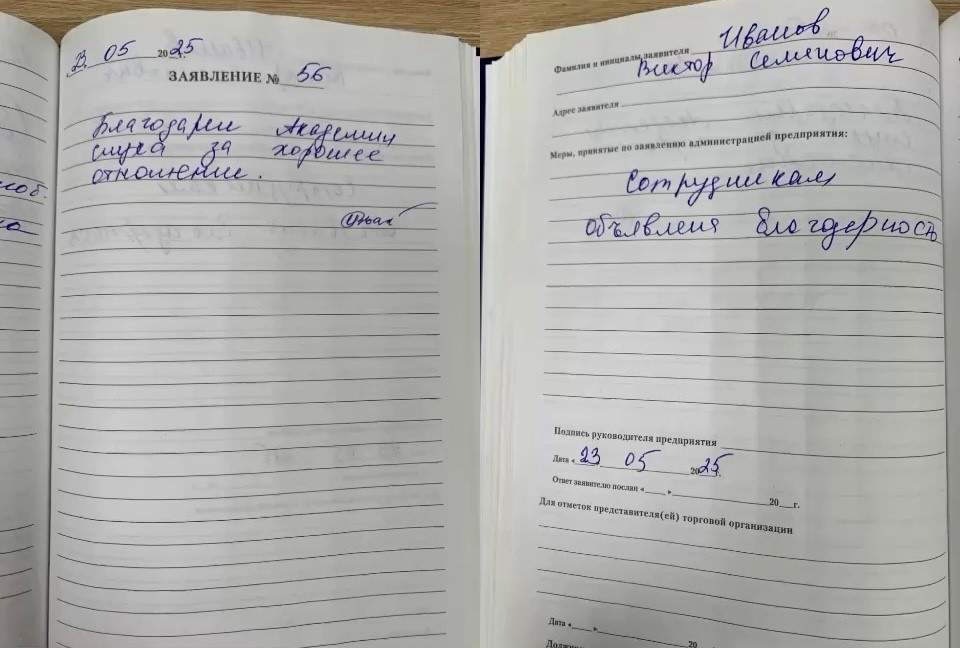 23 05 2025.
ЗАЯВЛЕНИЕ № 56
Благодарен Академии
слуха за хорошее
отношение.
Фамилия и инициалы заявителя Иванов
Виктор Семёнович
Адрес заявителя
Меры, принятые по заявлению администрацией предприятия:
Сотрудникам
объявлена благодарность
Подпись руководителя предприятия
Дата « 23 05 2025.
Ответ заявителю послан « » 20 г.
Для отметок представителя(ей) торговой организации
Дата « » 20